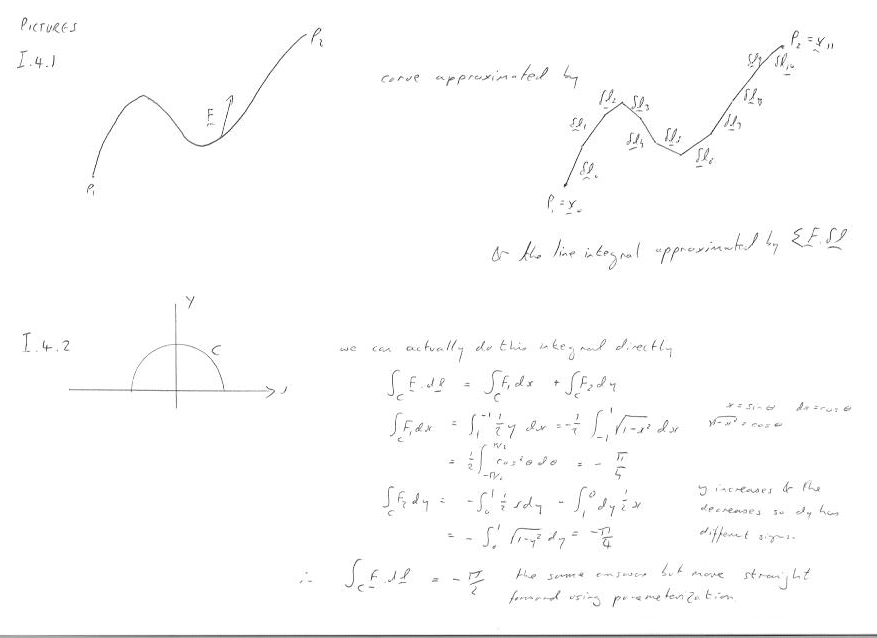 PICTURES
I.4.1
P₂
F
P₁
curve approximated by
P₂ = r₁₁
δl₉ δl₁₀
δl₂ δl₃
δl₈
δl₁
δl₇
δl₄ δl₅
δl₆
δl₀
P₁ = r₀
& the line integral approximated by ΣF.δl
I.4.2
y
C
we can actually do this integral directly
∫_C F.dl = ∫_C F₁dx + ∫_C F₂dy
∫_C F₁dx = ∫₁^{-1} ½ y dx = -½ ∫_{-1}^{1} √(1-x²) dx
x = sin θ dx = cos θ
√(1-x²) = cos θ
= ½ ∫_{-π/2}^{π/2} cos²θ dθ = - π/4
∫_C F₂dy = -∫₀¹ ½ x dy - ∫₁⁰ dy ½ x
= - ∫₀¹ √(1-y²) dy = -π/4
y increases & the
decreases so dy has
different signs.
∴ ∫_C F.dl = - π/2
the same answer but more straight
forward using parameterization